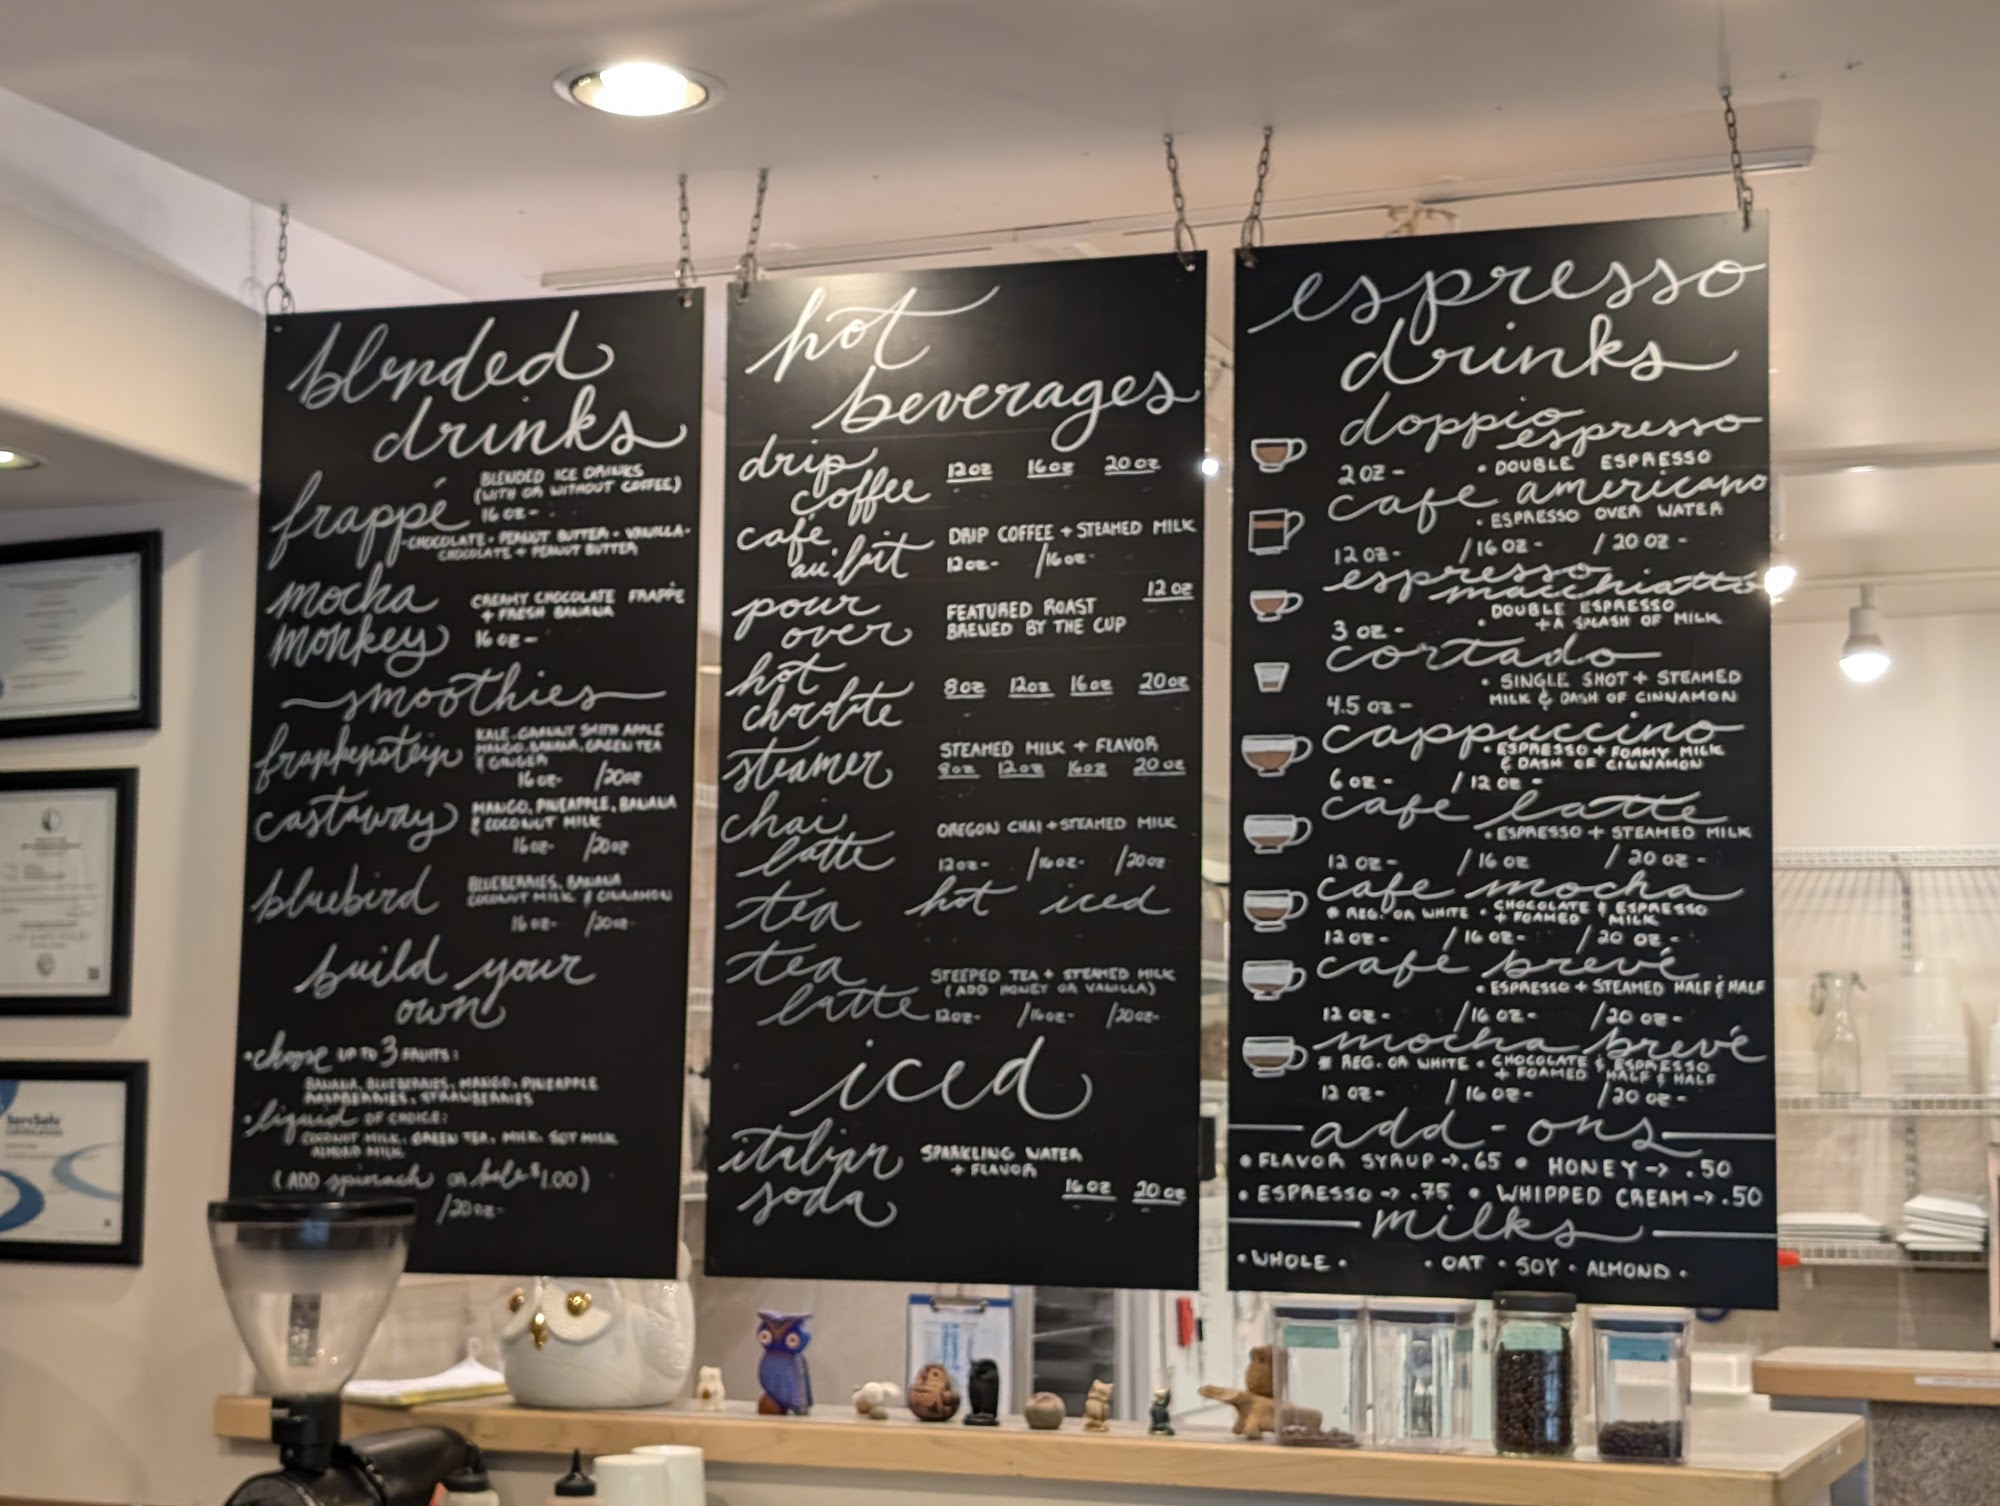 blended
drinks
frappé
BLENDED ICE DRINKS
(WITH OR WITHOUT COFFEE)
16 OZ-
•CHOCOLATE • PEANUT BUTTER • VANILLA•
CHOCOLATE + PEANUT BUTTER
mocha
monkey
CREAMY CHOCOLATE FRAPPÉ
+ FRESH BANANA
16 OZ-
smoothies
frankenstein
KALE, GRANNY SMITH APPLE
MANGO, BANANA, GREEN TEA
& GINGER
16 OZ- /20 OZ
castaway
MANGO, PINEAPPLE, BANANA
& COCONUT MILK
16 OZ- /20 OZ
bluebird
BLUEBERRIES, BANANA
COCONUT MILK & CINNAMON
16 OZ- /20 OZ-
build your
own
•choose UP TO 3 FRUITS:
BANANA, BLUEBERRIES, MANGO, PINEAPPLE
RASPBERRIES, STRAWBERRIES
•liquid OF CHOICE:
COCONUT MILK, GREEN TEA, MILK, SOY MILK
ALMOND MILK
(ADD spinach OR kale $1.00)
/20 OZ-
hot
beverages
drip
coffee
12 OZ 16 OZ 20 OZ
café
au lait
DRIP COFFEE + STEAMED MILK
12 OZ- /16 OZ-
pour
over
12 OZ
FEATURED ROAST
BREWED BY THE CUP
hot
chocolate
8 OZ 12 OZ 16 OZ 20 OZ
steamer
STEAMED MILK + FLAVOR
8 OZ 12 OZ 16 OZ 20 OZ
chai
latte
OREGON CHAI + STEAMED MILK
12 OZ- /16 OZ- /20 OZ
tea hot iced
tea
latte
STEEPED TEA + STEAMED MILK
(ADD HONEY OR VANILLA)
12 OZ- /16 OZ- /20 OZ-
iced
italian
soda
SPARKLING WATER
+ FLAVOR
16 OZ 20 OZ
espresso
drinks
doppio
espresso
2 OZ - • DOUBLE ESPRESSO
cafe americano
• ESPRESSO OVER WATER
12 OZ - /16 OZ - /20 OZ -
espresso
macchiatto
• DOUBLE ESPRESSO
+ A SPLASH OF MILK
3 OZ -
cortado
• SINGLE SHOT + STEAMED
MILK & DASH OF CINNAMON
4.5 OZ -
cappuccino
• ESPRESSO + FOAMY MILK
& DASH OF CINNAMON
6 OZ - /12 OZ -
cafe latte
• ESPRESSO + STEAMED MILK
12 OZ - /16 OZ /20 OZ -
cafe mocha
* REG. OR WHITE • CHOCOLATE & ESPRESSO
+ FOAMED MILK
12 OZ - /16 OZ - /20 OZ -
cafe brevé
• ESPRESSO + STEAMED HALF & HALF
12 OZ - /16 OZ - /20 OZ -
mocha brevé
* REG. OR WHITE • CHOCOLATE & ESPRESSO
+ FOAMED HALF & HALF
12 OZ - /16 OZ - /20 OZ -
add-ons
• FLAVOR SYRUP → .65 • HONEY → .50
• ESPRESSO → .75 • WHIPPED CREAM → .50
milks
• WHOLE • • OAT • SOY • ALMOND •
ServSafe